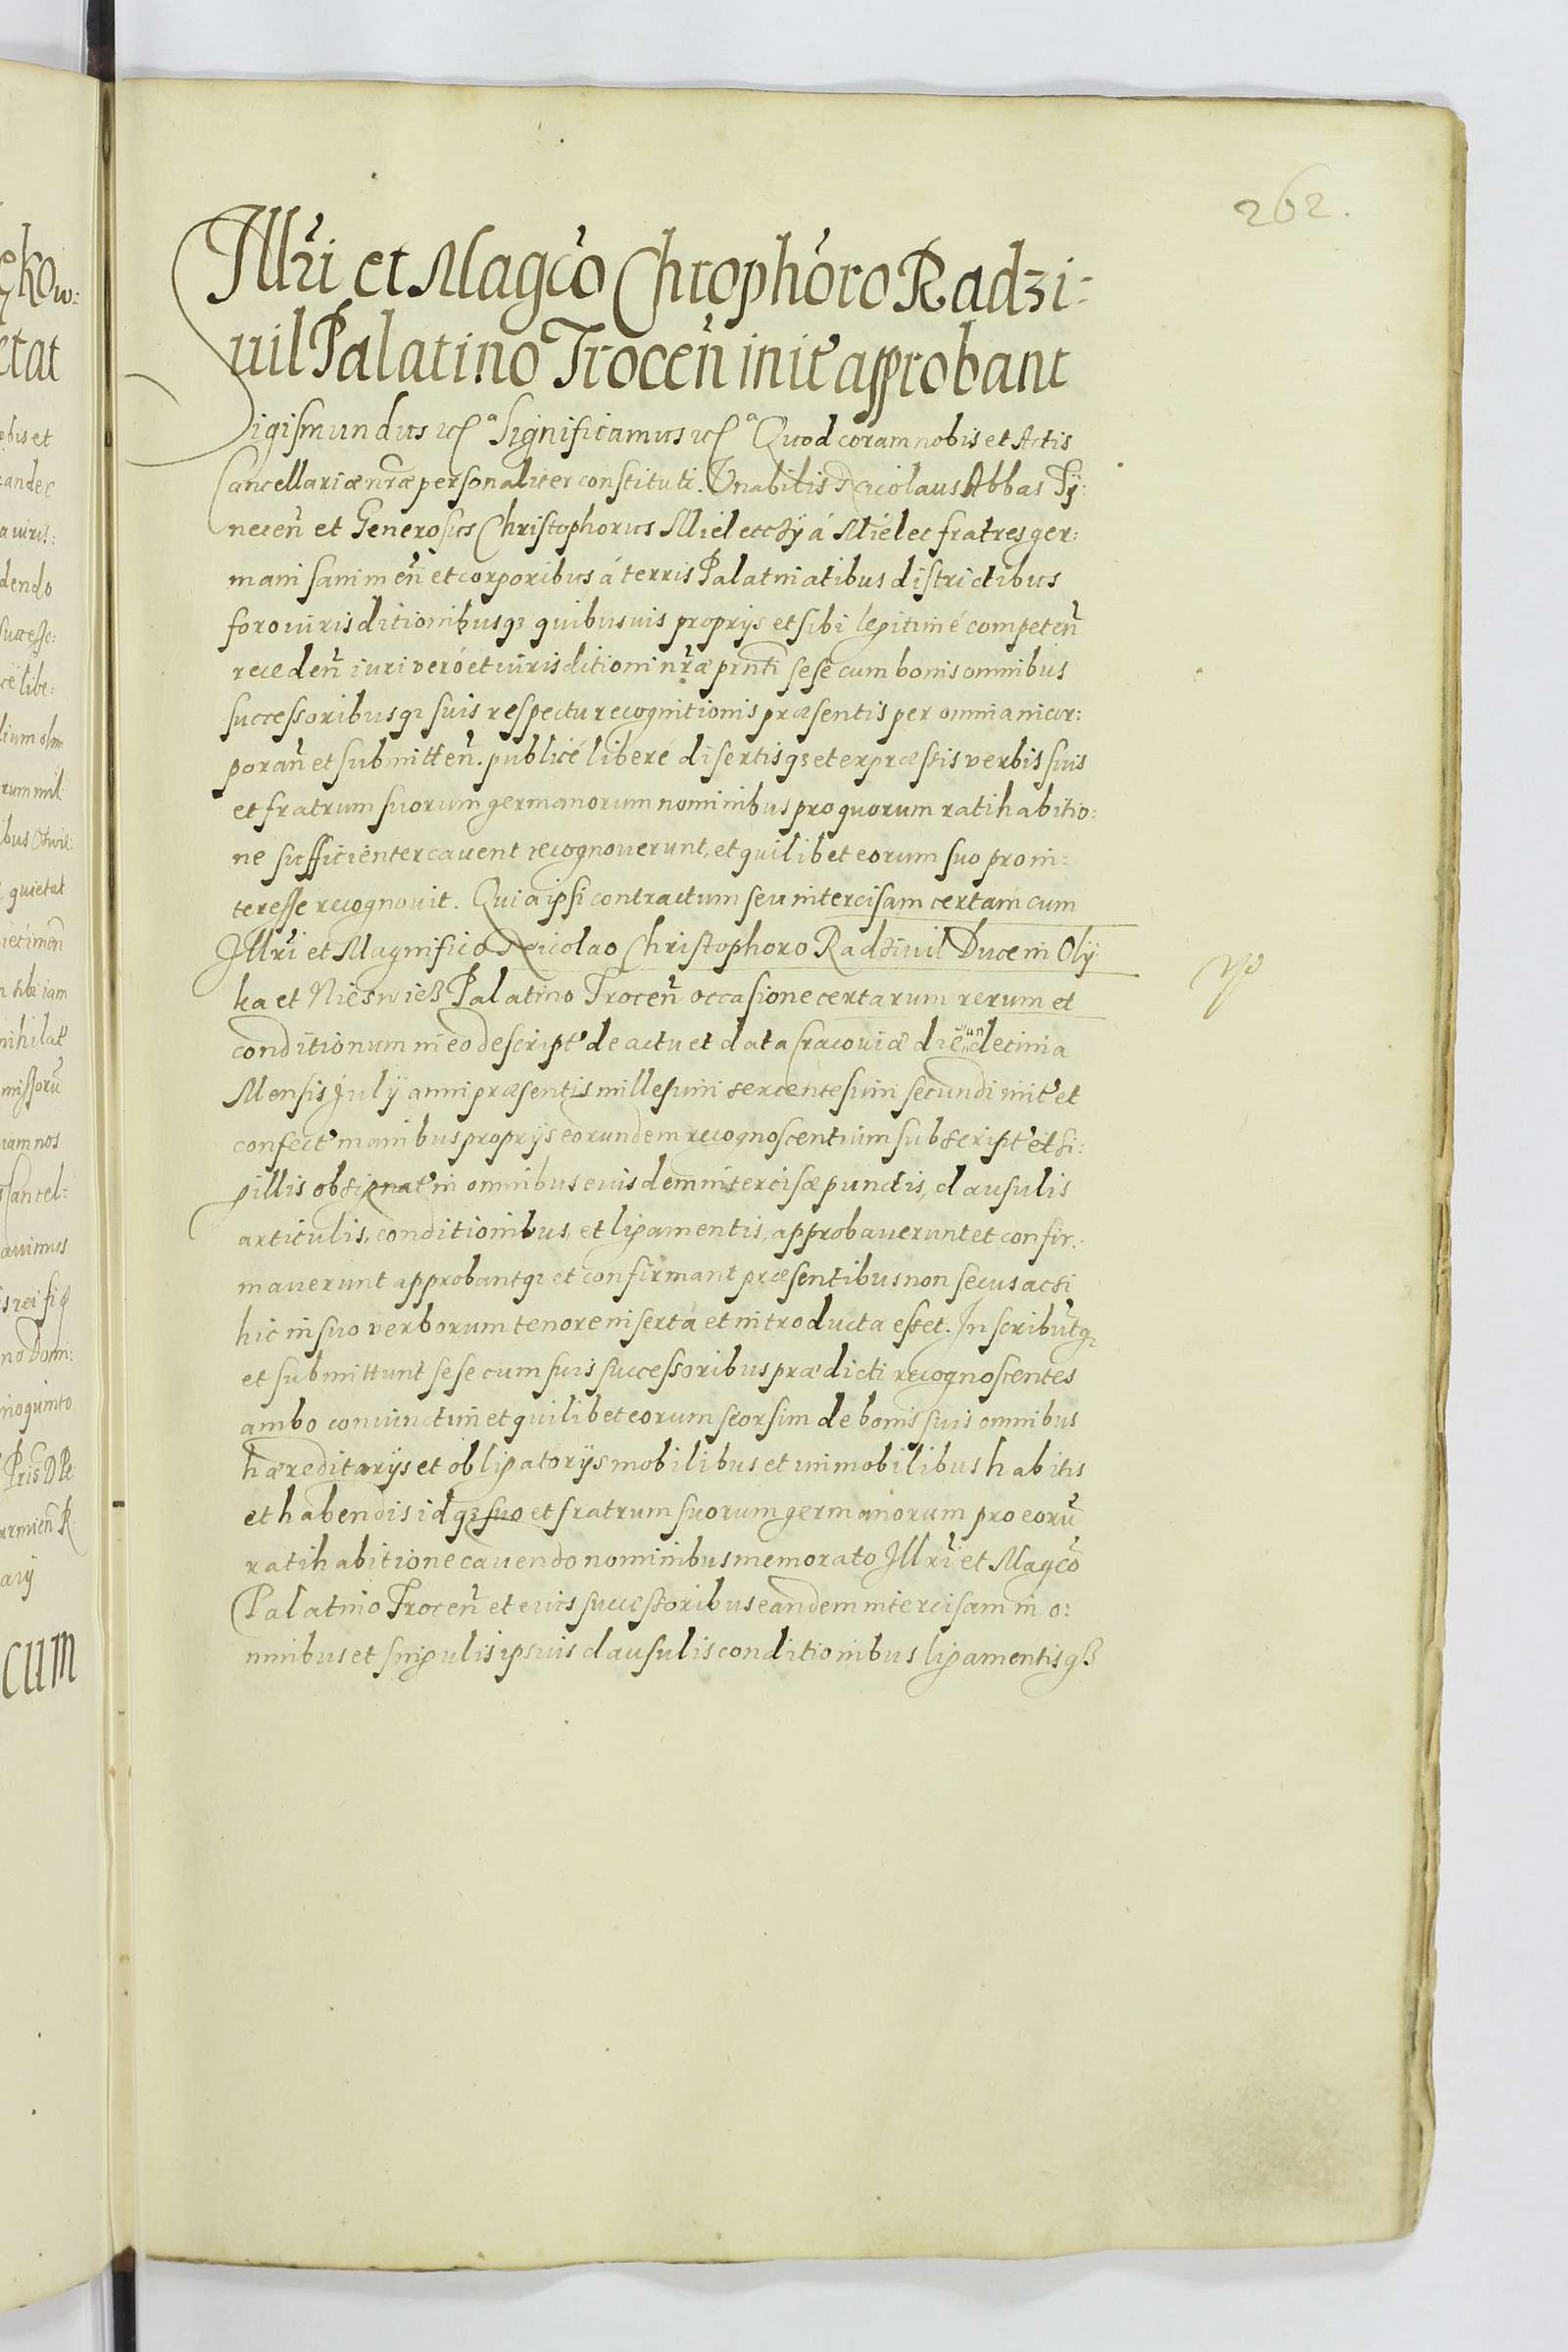 262.
Illri et Magco Chrophoro Radzi-
uil Palatino Trocen init approbant
Sigismundus etc a Significamus etc a Quod coram nobis et Actis
Cancellariæ nræ personaliter constituti. Vnabilis Nicolaus Abbas Ty:
necen et Generosus Christophorus Mielecczky á Mielec fratres ger:
mani sani men et corporibus á terris Palatinatibus districtibus
foro iurisditionibusqz quibusuis proprys et sibi legitimé competen
receden iuri veró et iurisditioni nræ pnti sese cum bonis omnibus
successoribusqz suis respectu recognitionis præsentis per omnia incor:
poran et submitten. publicé liberé disertisqz et expræssis verbis suis
et fratrum suorum germanorum nominibus pro quorum ratihabitio:
ne sufficienter cauent recognouerunt, et quilibet eorum suo pro in:
teresse recognouit. Quia ipsi contractum seu intercisam certam cum
Illri et Magnifico Nicolao Christophoro Radziuil Duce in Oly
ka et Nieswieß Palatino Trocen occasione certarum rerum et
conditionum in eo descript de actu et data Cracouiæ die undecima
Mensis July anni præsentis millesimi sexcentesimi secundi init et
confect manibus proprys eorundem recognoscentium subscript et si:
gillis obsignat in omnibus euisdem intercisæ punctis, clausulis
articulis, conditionibus, et ligamentis, approbauerunt et confir:
mauerunt approbantqz et confirmant præsentibus non secus ac si
hic in suo verborum tenore inserta et introducta esset. Inscributqz
et submittunt sese cum suis successoribus prædicti recognoscentes
ambo coniunctim et quilibet eorum seorsim de bonis suis omnibus
hæreditarys et obligatorys mobilibus et immobilibus habitis
et habendis idqz suo et fratrum suorum germanorum pro eoru
ratihabitione cauendo nominibus memorato Illri et Magco
Palatino Trocen et eius successoribus eandem intercisam in o:
mnibus et singulis ipsius clausulis conditionibus ligamentisqz